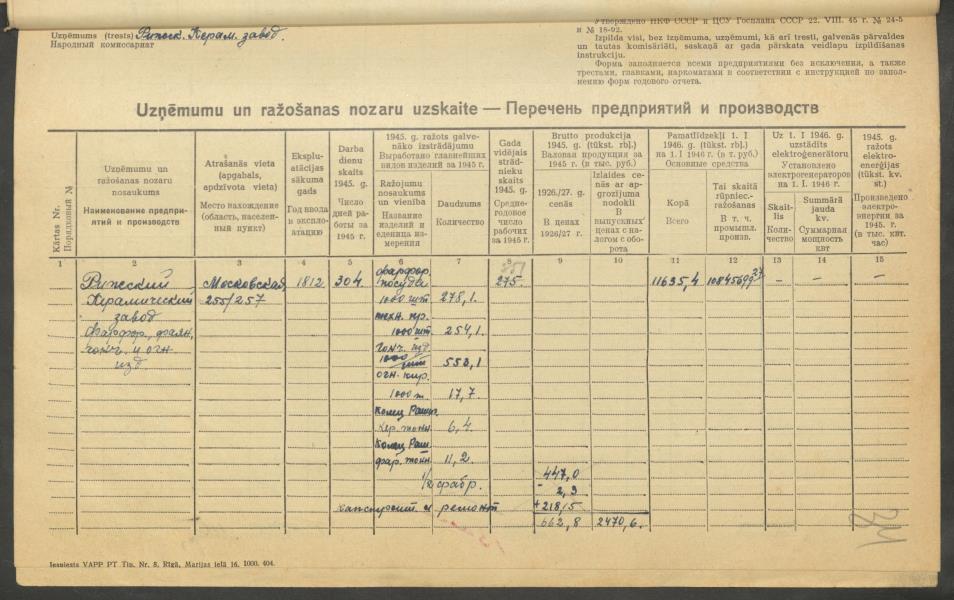 Uzņēmums (trests) Рижск. Керам. завод.
Народный комиссариат
Утверждено НКФ СССР и ЦСУ Госплана СССР 22. VIII. 45 г. № 24-5
и № 18-02.
Izpilda visi, bez izņēmuma, uzņēmumi, kā arī tresti, galvenās pārvaldes
un tautas komisāriāti, saskaņā ar gada pārskata veidlapu izpildīšanas
instrukciju.
Форма заполняется всеми предприятиями без исключения, а также
трестами, главками, наркоматами в соответствии с инструкцией по запол-
нению форм годового отчета.
Uzņēmumu un ražošanas nozaru uzskaite — Перечень предприятий и производств
Kārtas Nr.
Порядковый №
Uzņēmumu un
ražošanas nozaru
nosaukums
Наименование предпри-
ятий и производств
Atrašanās vieta
(apgabals,
apdzīvota vieta)
Место нахождение
(область, населен-
ный пункт)
Eksplu-
atācijas
sākuma
gads
Год ввода
в экспло-
атацию
Darba
dienu
skaits
1945. g.
Число
дней ра-
боты за
1945 г.
1945. g. ražots galve-
nāko izstrādājumu
Выработано главнейших
видов изделий за 1945 г.
Ražojumu
nosaukums
un vienība
Название
изделий и
еденица из-
мерения
Daudzums
Количество
Gada
vidējais
strād-
nieku
skaits
1945. g.
Средне-
годовое
число
рабочих
за 1945 г.
Brutto produkcija
1945. g. (tūkst. rbļ.)
Валовая продукция за
1945 г. (в тыс. руб.)
1926./27. g.
cenās
В ценах
1926/27 г.
Izlaides ce-
nās ar ap-
grozījuma
nodokli
В
выпускных
ценах с на-
логом с обо-
рота
Pamatlīdzekļi 1. I
1946. g. (tūkst. rbļ.)
на 1. I 1946 г. (в т. руб.)
Основные средства
Kopā
Всего
Tai skaitā
rūpniec.-
ražošanas
В т. ч.
промышл.
произв.
Uz 1. I 1946. g.
uzstādīts
elektroģenerātoru
Установлено
электрогенераторов
на 1. I. 1946 г.
Skait-
lis
Коли-
чество
Summārā
jauda
kv.
Суммарная
мощность
квт
1945. g.
ražots
elektro-
enerģijas
(tūkst. kv.
st.)
Произведено
электро-
энергии за
1945 г.
(в тыс. квт.
час)
1 2 3 4 5 6 7 8 9 10 11 12 13 14 15
фарфор.
Рижский Московская 1812 304 посуда 275. 11635,4 — — —
Керамический 255/257 1000 шт 278,1.
завод техн. пр.
фарфор, фаян, 1000 шт. 254,1.
гонч. и огн. гонч. изд.
изд 553,1
огн. кир.
1000 т. 17,7.
Колец Раш.
кер. тонн 6,4.
Колец Раш
фар. тонн 11,2.
447,0
1/2 фабр. - 2,3
капстроит. и ремонт +218,5
662,8 2470,6.
Iespiests VAPP PT Tip. Nr. 8, Rīgā, Marijas ielā 16. 1000. 404.